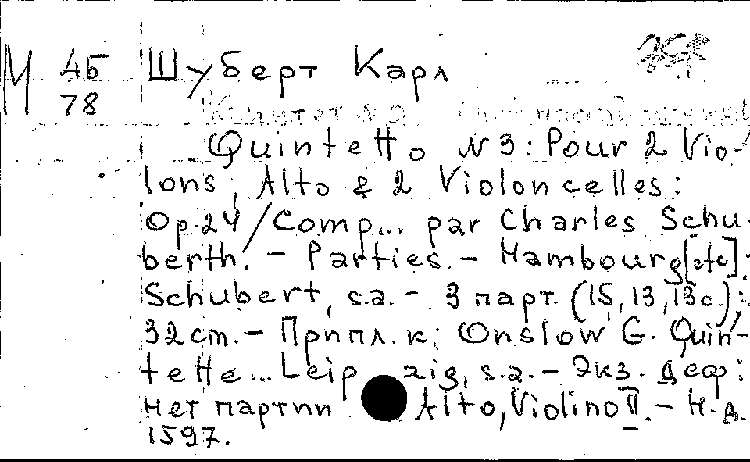 М 45 Шуберт Карл
78
Quintetto N 3: Pour 2 Vio-
lons, Alto & 2 Violoncelles:
Op. 24 / Comp... par Charles Schu-
berth. - Parties. - Hambourg [etc]:
Schubert, s.a. - 3 парт. (15, 13, 13 с.);
32 cm. - Припл. к: Onslow G. Quin-
tette... Leipzig, s.a. - Экз. деф:
нет партии Alto, Violino II. - Н. д.
1597.